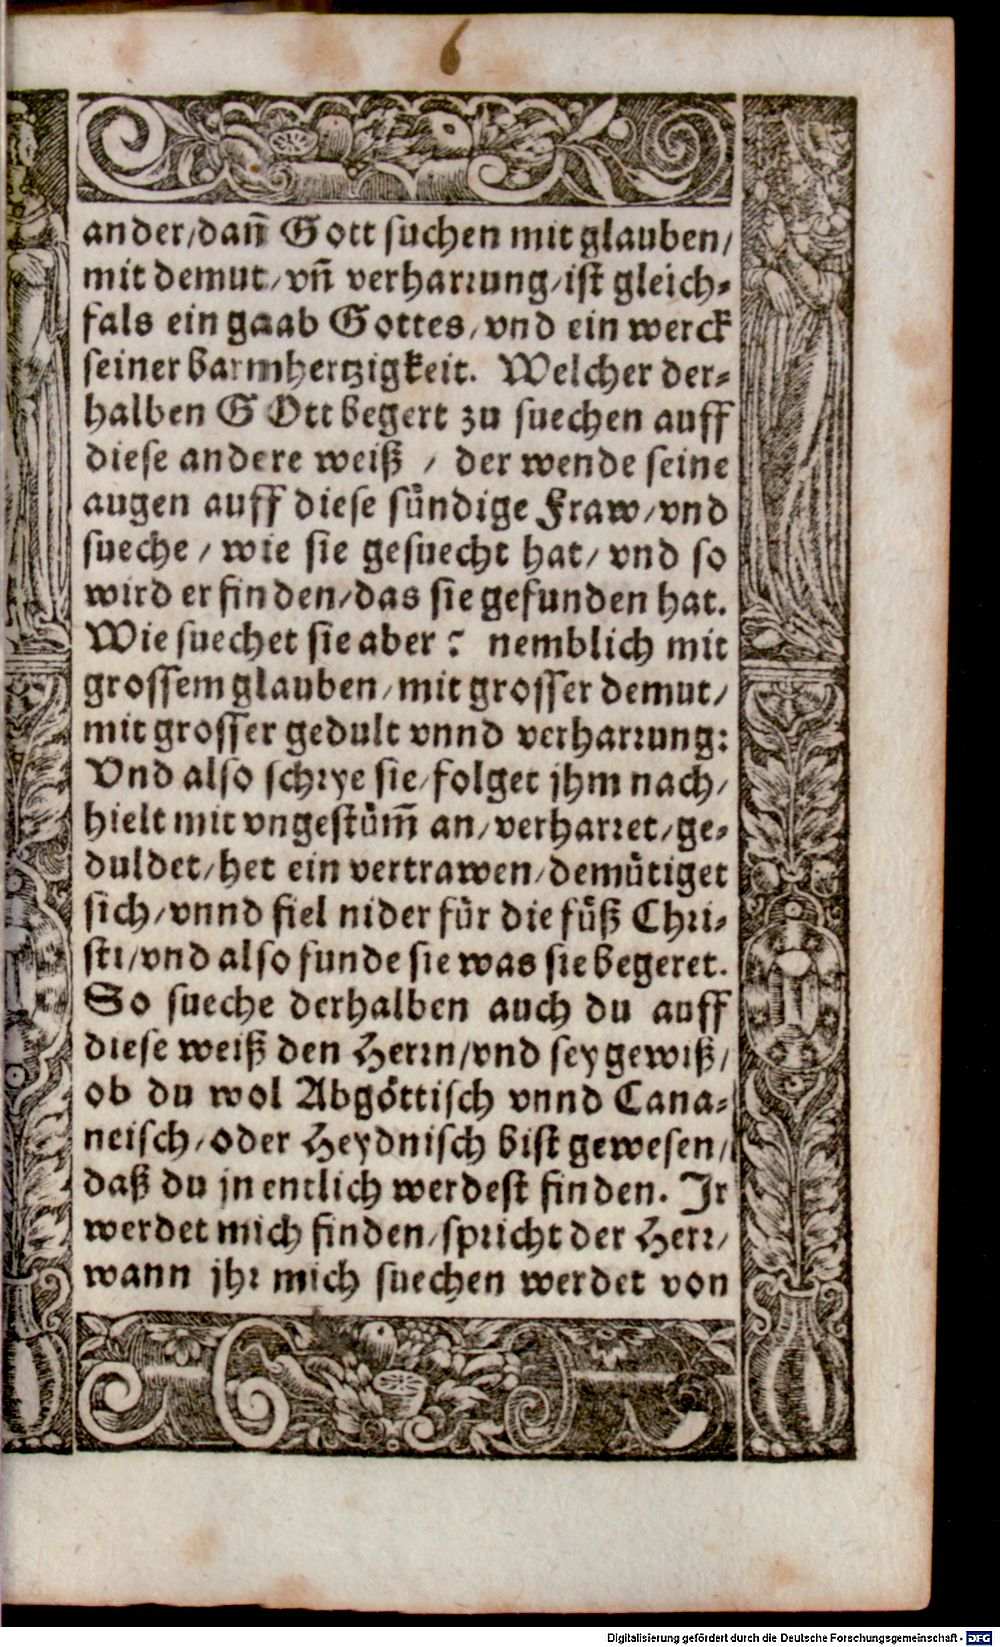 6
ander/dañ Gott suchen mit glauben/
mit demut/ vñ verharrung/ist gleich-
fals ein gaab Gottes/ vnd ein werck
seiner barmhertzigkeit. Welcher der-
halben GOtt begert zu suechen auff
diese andere weiß / der wende seine
augen auff diese sündige Fraw/vnd
sueche / wie sie gesuecht hat/ vnd so
wird er finden/das sie gefunden hat.
Wie suechet sie aber? nemblich mit
grossem glauben/mit grosser demut/
mit grosser gedult vnnd verharrung:
Vnd also schrye sie/folget jhm nach/
hielt mit vngestüm̃ an/verharret/ge-
duldet/het ein vertrawen/demütiget
sich/vnnd fiel nider für die füß Chri-
sti/vnd also funde sie was sie begeret.
So sueche derhalben auch du auff
diese weiß den Herrn/vnd sey gewiß/
ob du wol Abgöttisch vnnd Cana-
neisch/oder Heydnisch bist gewesen/
daß du jn entlich werdest finden. Jr
werdet mich finden/spricht der Herr/
wann jhr mich suechen werdet von
Digitalisierung gefördert durch die Deutsche Forschungsgemeinschaft - DFG